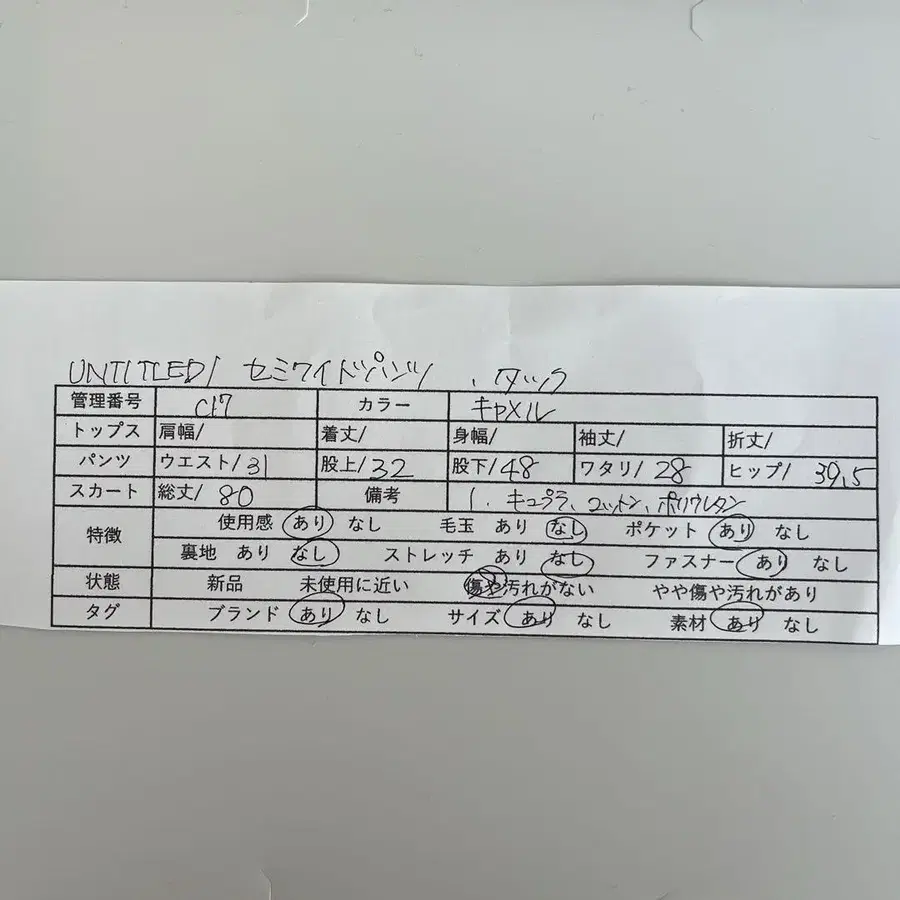 UNTITLED/ セミワイドパンツ 、タック
管理番号 C17 カラー キャメル
トップス 肩幅/ 着丈/ 身幅/ 袖丈/ 折丈/
パンツ ウエスト/31 股上/32 股下/48 ワタリ/28 ヒップ/39,5
スカート 総丈/80 備考 1. キュプラ、コットン、ポリウレタン
特徴 使用感 あり なし 毛玉 あり なし ポケット あり なし
裏地 あり なし ストレッチ あり なし ファスナー あり なし
状態 新品 未使用に近い 傷や汚れがない やや傷や汚れがあり
タグ ブランド あり なし サイズ あり なし 素材 あり なし